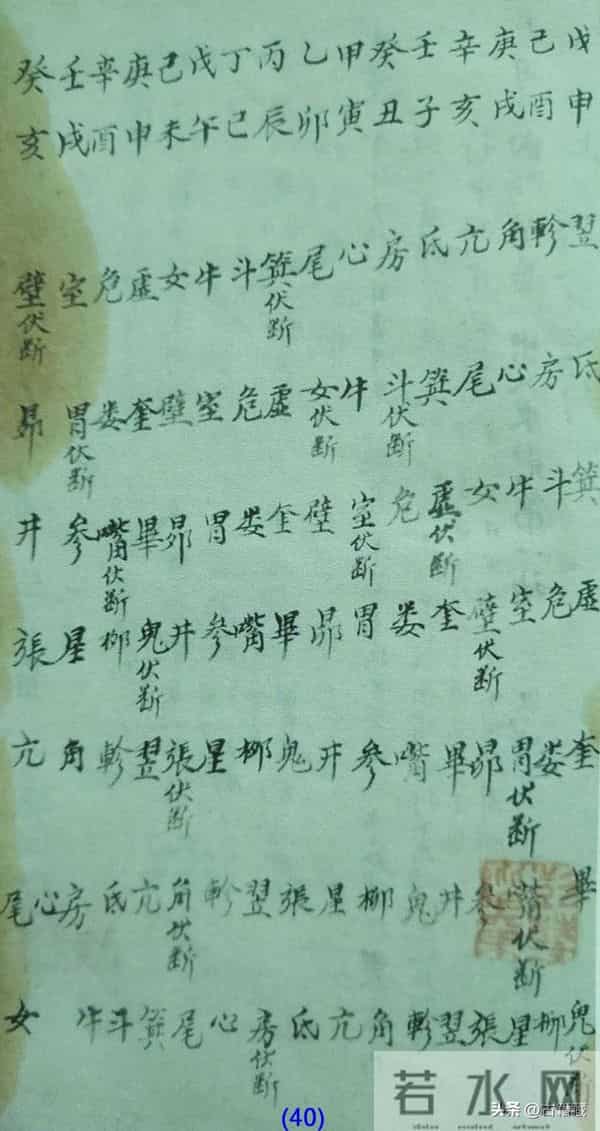 戊申 翌 氐 箕 虚 奎 畢 鬼伏断
己酉 軫 房 斗 危 娄 嘴伏断 柳
庚戌 角 心 牛 室 胃伏断 参 星
辛亥 亢 尾 女 壁伏断 昴 井 張
壬子 氐 箕 虚伏断 奎 畢 鬼 翌
癸丑 房 斗伏断 危 娄 嘴 柳 軫
甲寅 心 牛 室伏断 胃 参 星 角
乙卯 尾 女伏断 壁 昴 井 張 亢
丙辰 箕伏断 虚 奎 畢 鬼 翌 氐
丁巳 斗 危 娄 嘴 柳 軫 房伏断
戊午 牛 室 胃 参 星 角伏断 心
己未 女 壁 昴 井 張伏断 亢 尾
庚申 虚 奎 畢 鬼伏断 翌 氐 箕
辛酉 危 娄 嘴伏断 柳 軫 房 斗
壬戌 室 胃伏断 参 星 角 心 牛
癸亥 壁伏断 昴 井 張 亢 尾 女
(40)
若水网